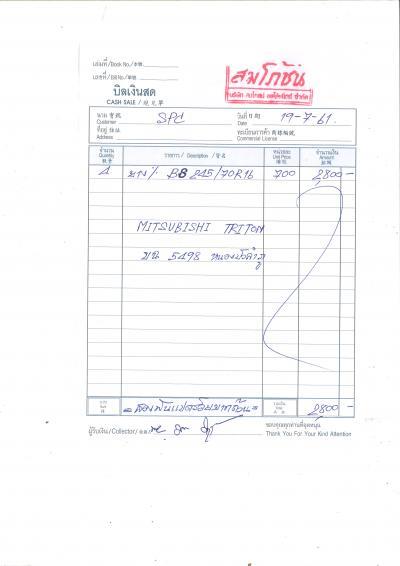 เล่มที่/Book No./本號
เลขที่/Bill No./單號
บิลเงินสด
CASH SALE / 現兌單
สมโภชน์
นาม 寶號
Customer SPC
วันที่ 日期
Date 19-7-61
ที่อยู่ 住址
Address
ทะเบียนการค้า 商標編號
Commercial License
จำนวน
Quantity
數量
รายการ / Description / 貨名
หน่วยละ
Unit Price
จำนวนเงิน
Amount
4 ยาง BS 245/70R16 700 2,800-
MITSUBISHI TRITON
5498 หนองบัวลำภู
=สองพันแปดร้อยบาทถ้วน= 2800-
ผู้รับเงิน/Collector/
ขอบคุณทุกท่านที่อุดหนุน
Thank You For Your Kind Attention